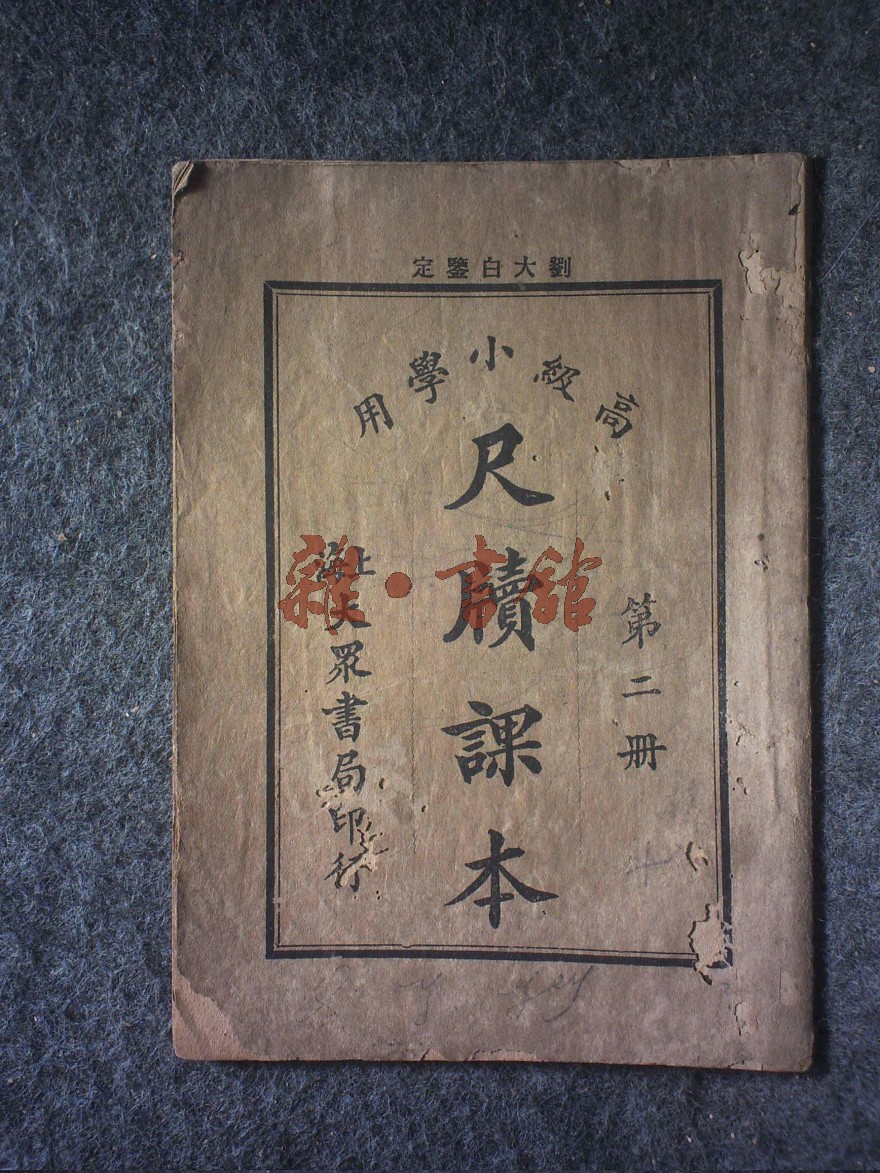 劉大白鑒定
高級小學用
第二冊
尺牘課本
上海大眾書局印行
雜·書舘